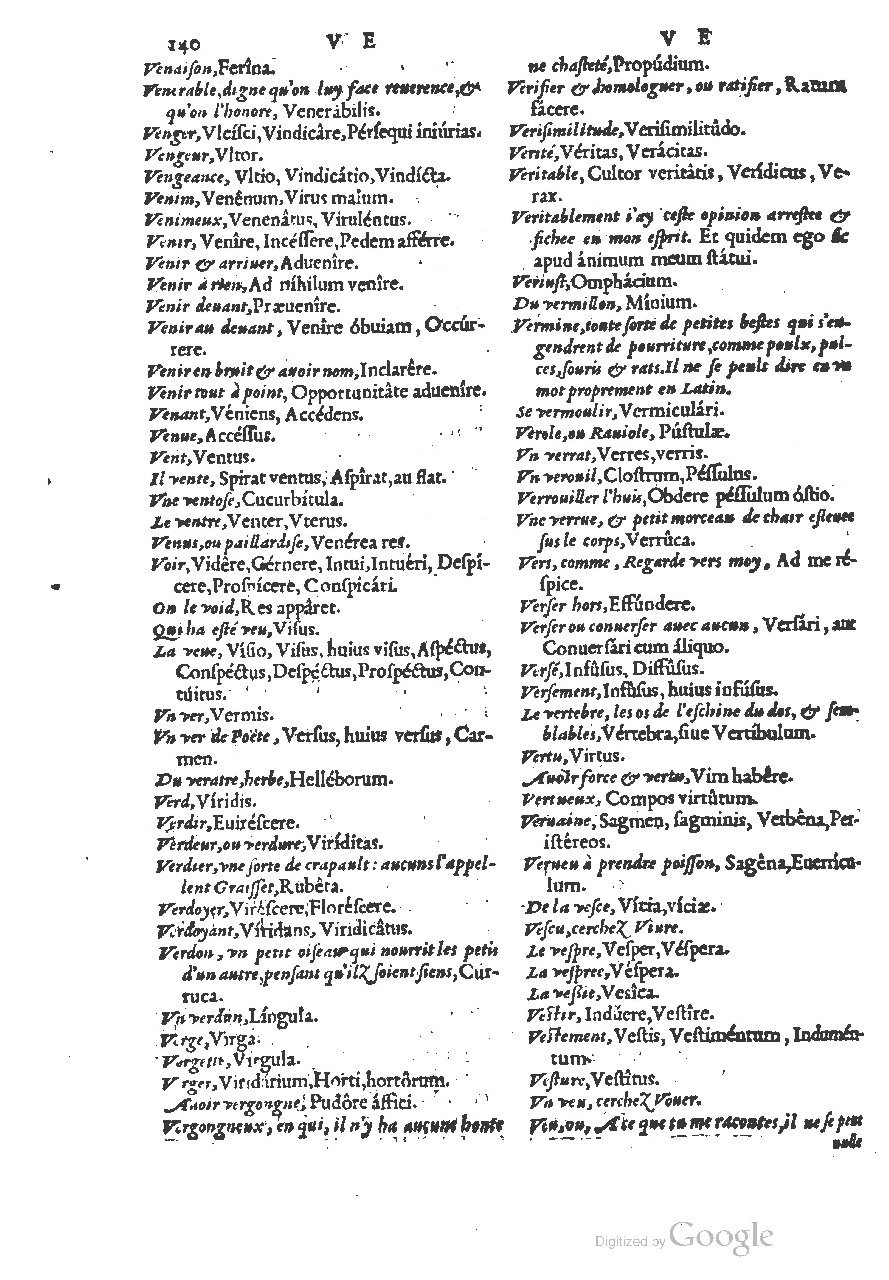 140 V E
Venaiſon,Ferîna.
Venerable,digne qu'on luy face reuerence,&
qu'on l'honore, Venerábilis.
Venger,Vlciſci,Vindicâre,Pérſequi iniúrias.
Vengeur,Vltor.
Vengeance, Vltio, Vindicátio,Vindícta.
Venim,Venênum,Virus malum.
Venimeux,Venenâtus, Viruléntus.
Venir, Venîre, Incéſſere,Pedem afférre.
Venir & arriuer,Aduenîre.
Venir à rien,Ad níhilum venîre.
Venir deuant,Præuenîre.
Venir au deuant, Venîre óbuiam, Occúr-
rere.
Venir en bruit & auoir nom,Inclarêre.
Venir tout à point, Opportunitâte aduenîre.
Venant,Véniens, Accédens.
Venue,Accéſſus.
Vent,Ventus.
Il vente, Spirat ventus, Aſpîrat,au flat.
Vne ventoſe,Cucurbítula.
Le ventre,Venter,Vterus.
Venus,ou paillardiſe,Venérea res.
Voir,Vidêre,Gérnere, Intui,Intuéri, Deſpí-
cere,Proſpícere, Conſpicári.
On le void,Res appâret.
Qui ha eſté veu,Viſus.
La veue, Víſio, Viſus, huius viſus,Aſpéctus,
Conſpéctus,Deſpéctus,Proſpéctus,Con-
túitus.
Vn ver,Vermis.
Vn ver de Poëte, Verſus, huius verſus, Car-
men.
Du veratre,herbe,Helléborum.
Verd,Víridis.
Verdir,Euiréſcere.
Verdeur,ou verdure,Viríditas.
Verdier,vne ſorte de crapault: aucuns l'appel-
lent Graiſſet,Rubêta.
Verdoyer,Viréſcere,Floréſcere.
Verdoyant,Víridans, Viridicâtus.
Verdon, vn petit oiſeau qui nourrit les petis
d'un autre,penſant qu'ilz ſoient ſiens,Cúr-
ruca.
Vn verdun,Língula.
Verge,Virga.
Vergette,Vírgula.
Verger,Viridárium,Horti,hortôrum.
Auoir vergongne, Pudôre áffici.
Vergongneux, en qui, il n'y ha aucune honte
V E
ne chaſteté,Propúdium.
Verifier & homologuer, ou ratifier, Ratum
fácere.
Veriſimilitude,Veriſimilitûdo.
Verité,Véritas, Verácitas.
Veritable, Cultor veritâtis, Verídicus, Ve-
rax.
Veritablement i'ay ceſte opinion arreſtee &
fichee en mon eſprit. Et quidem ego ſic
apud ánimum meum ſtátui.
Veriuſt,Omphácium.
Du vermillon, Mínium.
Vermine,toute ſorte de petites beſtes qui s'en-
gendrent de pourriture,comme poulx, pul-
ces,ſouris & rats.Il ne ſe peult dire en vn
mot proprement en Latin.
Se vermoulir,Vermiculári.
Verole,ou Rauiole, Púſtulæ.
Vn verrat,Verres,verris.
Vn verouil,Cloſtrum,Péſſulus.
Verrouiller l'huis,Obdere péſſulum óſtio.
Vne verrue, & petit morceau de chair eſleuee
ſus le corps,Verrûca.
Vers, comme, Regarde vers moy, Ad me ré-
ſpice.
Verſer hors,Effúndere.
Verſer ou conuerſer auec aucun, Verſári, aut
Conuerſári cum áliquo.
Verſé,Infûſus, Diffûſus.
Verſement,Infûſus, huius infúſus.
Le vertebre, les os de l'eſchine du dos, & ſem-
blables,Vértebra,ſiue Vertíbulum.
Vertu,Virtus.
Auoir force & vertu,Vim habêre.
Vertueux, Compos virtûtum.
Veruaine,Sagmen, ſagminis, Verbêna,Per-
iſtéreos.
Verueu à prendre poiſſon, Sagêna,Euerricu-
lum.
De la veſce, Vícia,víciæ.
Veſcu,cerchez Viure.
Le veſpre,Veſper,Véſpera.
La veſpree,Véſpera.
La veſſie,Vesîca.
Veſtir, Indúere,Veſtîre.
Veſtement,Veſtis, Veſtiméntum, Indumén-
tum.
Veſture,Veſtîtus.
Vn veu, cerchez Vouer.
Veu,ou, A ce que tu me racontes,il ne ſe peut
nulle
Digitized by Google